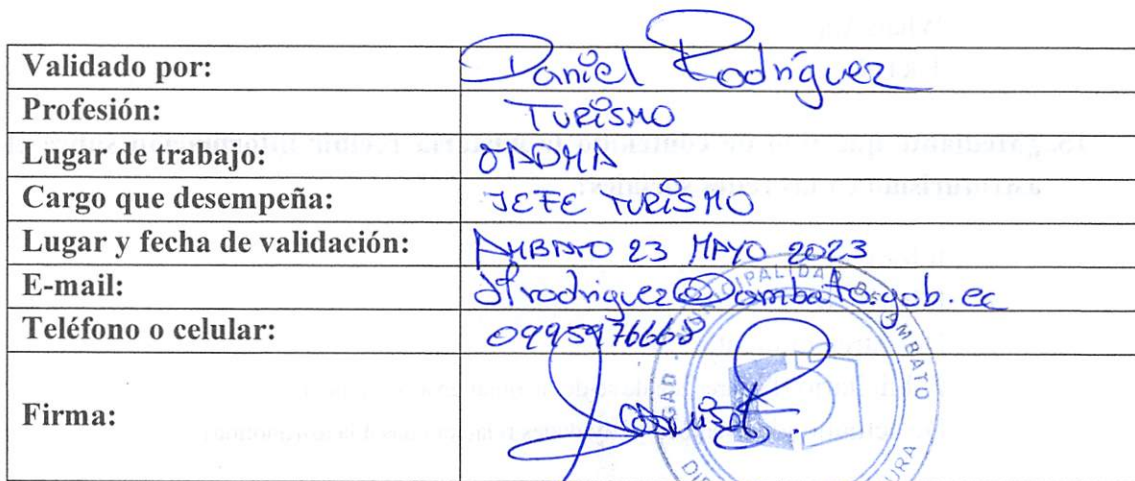 Validado por: Daniel Rodríguez
Profesión: TURISMO
Lugar de trabajo: GADMA
Cargo que desempeña: JEFE TURISMO
Lugar y fecha de validación: AMBATO 23 MAYO 2023
E-mail: dfrodriguez@ambato.gob.ec
Teléfono o celular:
Firma:
GAD MUNICIPALIDAD DE AMBATO